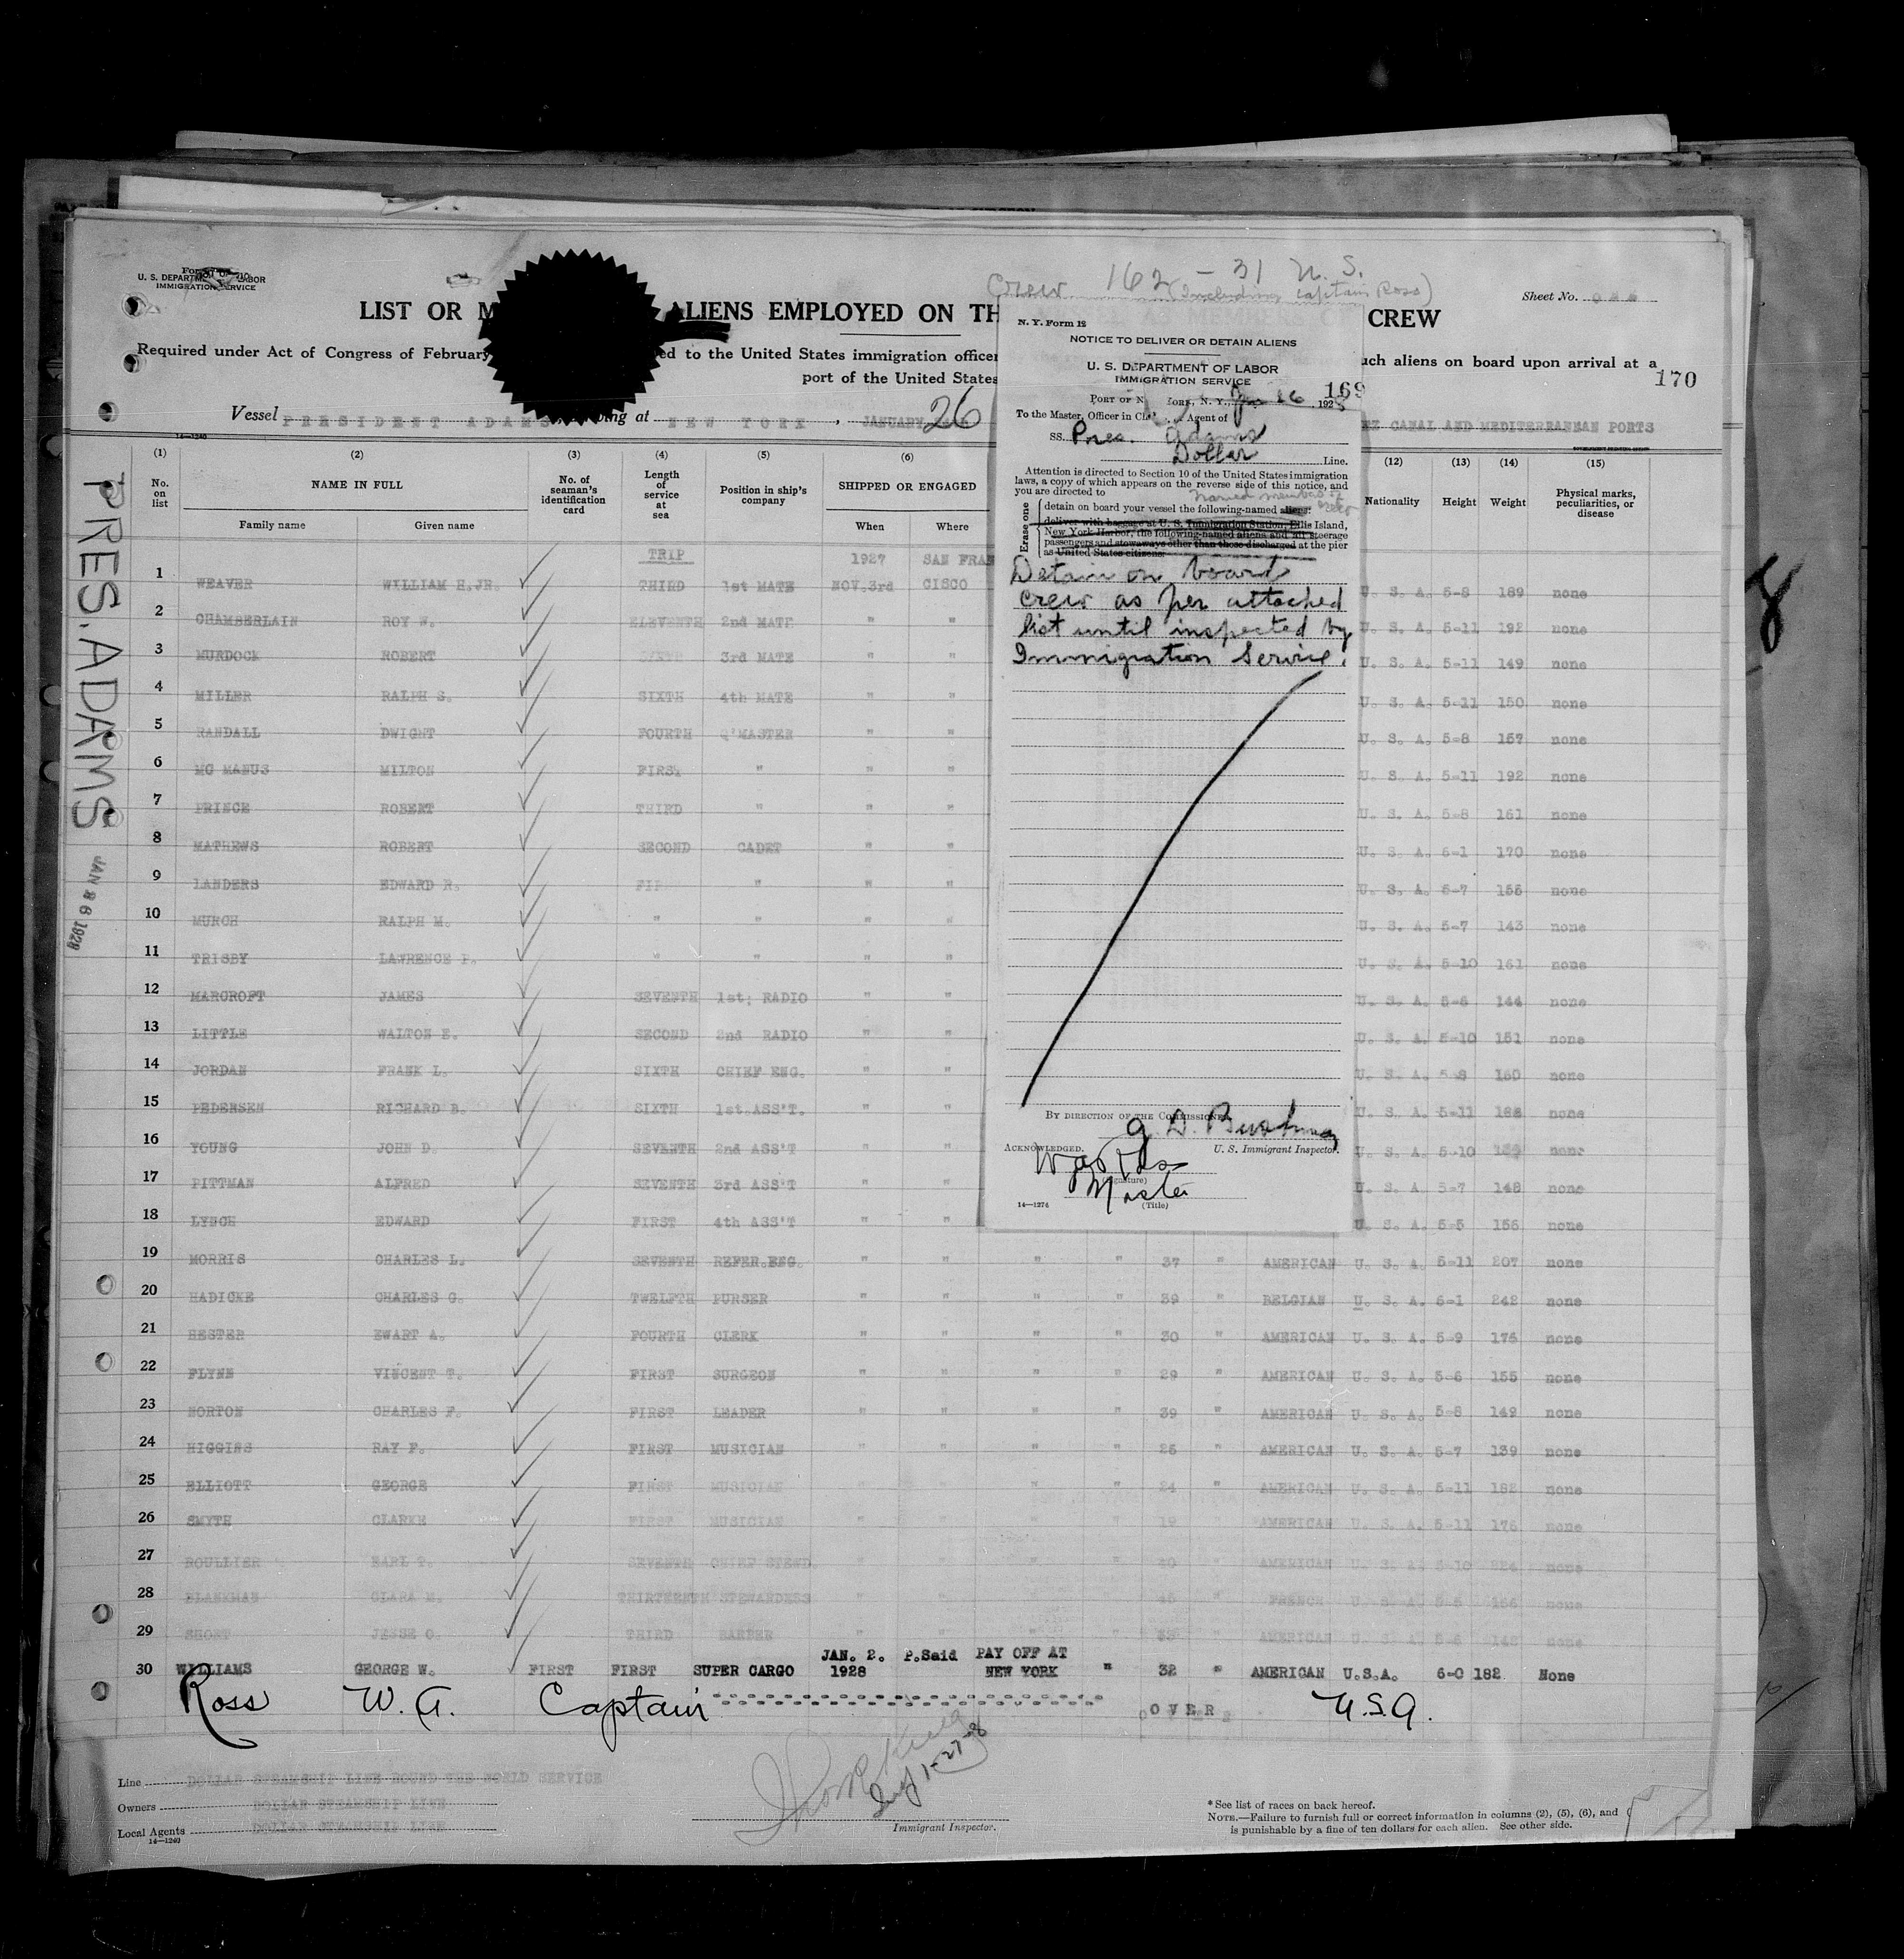 Crew 162 - 31 U. S.
(Including Captain Ross)
U. S. DEPARTMENT OF LABOR
IMMIGRATION SERVICE
Sheet No.
LIST OR M ALIENS EMPLOYED ON TH CREW
Required under Act of Congress of February ed to the United States immigration officer uch aliens on board upon arrival at a
port of the United States
170
Vessel PRESIDENT ADAMS ing at NEW YORK, JANUARY 26
EZ CANAL AND MEDITERRANEAN PORTS
14—1240
N. Y. Form 12
NOTICE TO DELIVER OR DETAIN ALIENS
U. S. DEPARTMENT OF LABOR
IMMIGRATION SERVICE
169
PORT OF N YORK, N. Y., Jan 26, 1928
To the Master, Officer in Ch Agent of
SS. Pres. Adams
Dollar Line.
Attention is directed to Section 10 of the United States immigration
laws, a copy of which appears on the reverse side of this notice, and
you are directed to
named members of crew
Erase one
detain on board your vessel the following-named aliens:
deliver with baggage at U. S. Immigration Station, Ellis Island,
New York Harbor, the following-named aliens and all steerage
passengers and stowaways other than those discharged at the pier
as United States citizens:
Detain on board
crew as per attached
list until inspected by
Immigration Service.
BY DIRECTION OF THE COMMISSIONER
U. S. Immigrant Inspector.
ACKNOWLEDGED.
(Signature)
Master
(Title)
14—1274
PRES. ADAMS
JAN 26 1928
8
(1) (2) (3) (4) (5) (6) (12) (13) (14) (15)
No. on list
NAME IN FULL
Family name Given name
No. of seaman's identification card
Length of service at sea
Position in ship's company
SHIPPED OR ENGAGED
When Where
Nationality Height Weight
Physical marks, peculiarities, or disease
TRIP 1927 SAN FRAN
1 WEAVER WILLIAM H. JR. THIRD 1st MATE NOV. 3rd CISCO U. S. A. 5-8 189 none
2 CHAMBERLAIN ROY W. ELEVENTH 2nd MATE " " U. S. A. 5-11 192 none
3 MURDOCK ROBERT 3rd MATE " " U. S. A. 5-11 149 none
4 MILLER RALPH S. SIXTH 4th MATE " " U. S. A. 5-11 150 none
5 RANDALL DWIGHT FOURTH Q'MASTER " " U. S. A. 5-8 157 none
6 MC MANUS MILTON FIRST " " " U. S. A. 5-11 192 none
7 PRINCE ROBERT THIRD " " " U. S. A. 5-8 161 none
8 MATHEWS ROBERT SECOND CADET " " U. S. A. 6-1 170 none
9 LANDERS EDWARD R. FIR " " " U. S. A. 5-7 155 none
10 MURCH RALPH M. " " " " U. S. A. 5-7 143 none
11 TRISBY LAWRENCE P. " " " " U. S. A. 5-10 161 none
12 MARCROFT JAMES SEVENTH 1st; RADIO " " U. S. A. 5-6 144 none
13 LITTLE WALTON E. SECOND 2nd RADIO " " U. S. A. 5-10 151 none
14 JORDAN FRANK L. SIXTH CHIEF ENG. " " U. S. A. 5-8 160 none
15 PEDERSEN RICHARD B. SIXTH 1st. ASS'T. " " U. S. A. 5-11 168 none
16 YOUNG JOHN D. SEVENTH 2nd ASS'T " " U. S. A. 5-10 none
17 PITTMAN ALFRED SEVENTH 3rd ASS'T " " U. S. A 5-7 148 none
18 LYNCH EDWARD FIRST 4th ASS'T " " U. S. A. 5-5 155 none
19 MORRIS CHARLES L. SEVENTH REFER. ENG. " " " " 37 " AMERICAN U. S. A. 5-11 207 none
20 HADICKE CHARLES G. TWELFTH PURSER " " " " 39 " BELGIAN U. S. A. 6-1 242 none
21 HESTER EWART A. FOURTH CLERK " " " " 30 " AMERICAN U. S. A. 5-9 175 none
22 FLYNN VINCENT T. FIRST SURGEON " " " " 29 " AMERICAN U. S. A. 5-6 155 none
23 NORTON CHARLES F. FIRST LEADER " " " " 39 " AMERICAN U. S. A. 5-8 149 none
24 HIGGINS RAY F. FIRST MUSICIAN " " " " 25 " AMERICAN U. S. A. 5-7 139 none
25 ELLIOTT GEORGE FIRST MUSICIAN " " " " 24 " AMERICAN U. S. A. 5-11 182 none
26 SMYTH CLARKE FIRST MUSICIAN " " " " 19 " AMERICAN U. S. A. 5-11 175 none
27 ROULLIER EARL T. SEVENTH CHIEF STEWD. " " " " 40 " AMERICAN U. S. A. 5-10 224 none
28 BLANKMAN CLARA M. THIRTEENTH STEWARDESS " " " " 45 " FRENCH U. S. A. 5-5 none
29 SHORT JESSE O. THIRD BARBER " " " " " AMERICAN U. S. A. 5-6 none
30 WILLIAMS GEORGE W. FIRST FIRST SUPER CARGO JAN. 2. 1928 P.Said PAY OFF AT NEW YORK " 32 " AMERICAN U.S.A. 6-0 182 None
Ross W. A. Captain OVER U.S.A.
Line DOLLAR STEAMSHIP LINE ROUND THE WORLD SERVICE
Owners DOLLAR STEAMSHIP LINE
Local Agents DOLLAR STEAMSHIP LINE
14—1240
1-27-8
Immigrant Inspector.
*See list of races on back hereof.
NOTE.—Failure to furnish full or correct information in columns (2), (5), (6), and
is punishable by a fine of ten dollars for each alien. See other side.